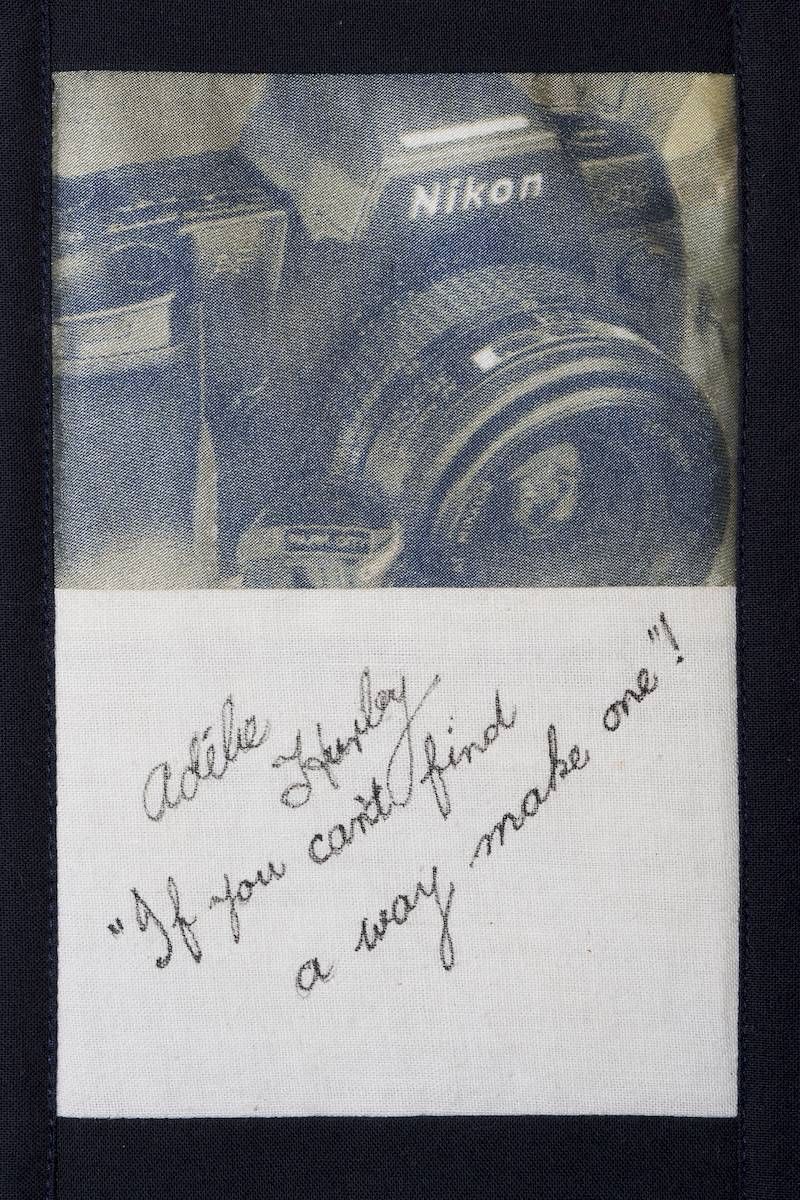 Nikon
Adélie Hurley
"If you can't find
a way make one"!